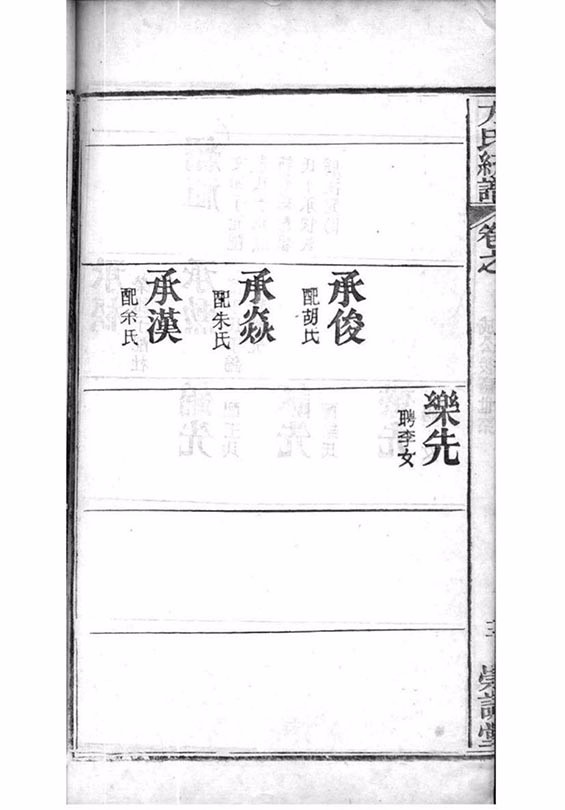 方氏統譜
卷之
承俊
配胡氏
承焱
配朱氏
承漢
配余氏
樂先
聘李女